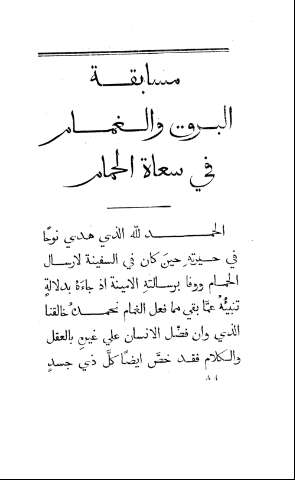 مسابقة
البروق والغمام
في سعاة الحمام
الحمد لله الذي هدي نوحًا
في حيرتهِ حينَ كان في السفينة لارسال
الحمام ووفا برسالتهِ الامينة اذ جاءَهُ بدلالةٍ
تنبيهُ عمَّا بقي مما فعل الغام نحمدكُ خالقنا
الذي وان فضْل الانسان علي غيرهِ بالعقل
والكلام فقد خصَّ ايضًا كلَّ ذي جسدٍ